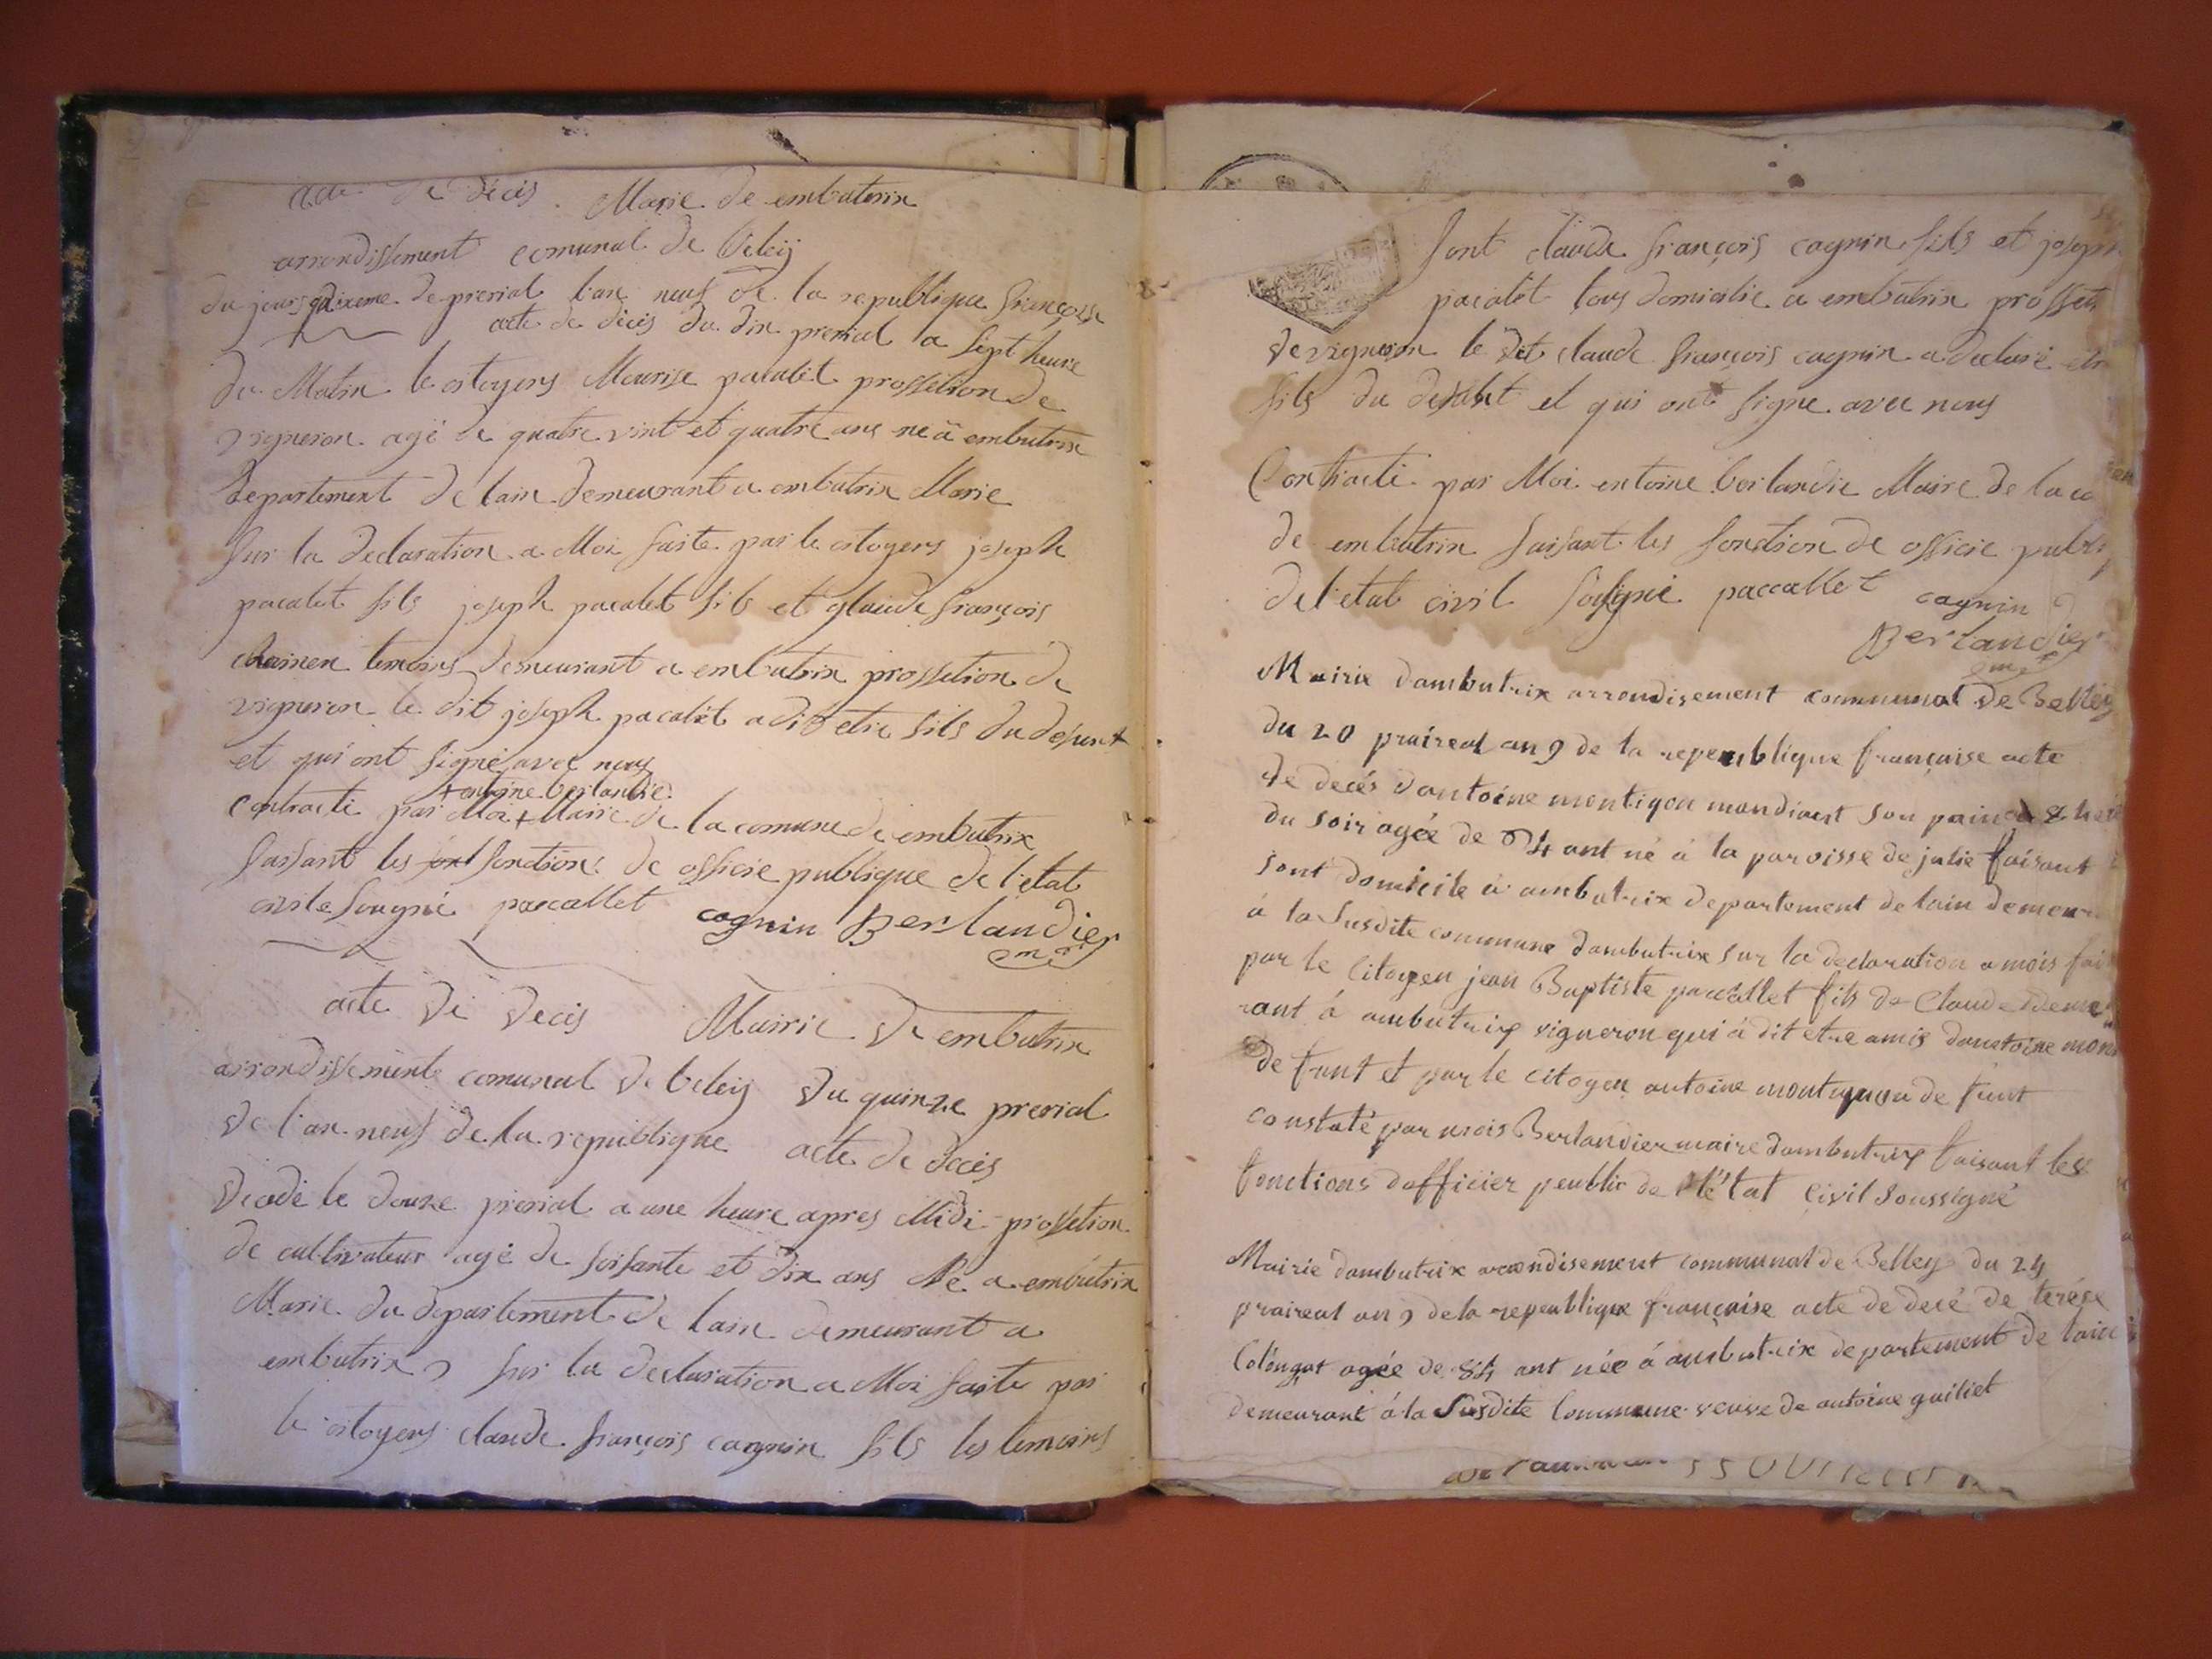 acte de décis . Marie de embatrin
arrondissement comunal de beleij
du jours quixeme de prerial l'an neuf de la republique françoise
acte de décis du dix prerial a sept heure
du Matin le citoyens Mourise pacalet prossetion de
vigneron agé de quatre vint et quatre ans ne a embutrix
departement de lain demeurant a embatrix Marie
sur la declaration a Moi faite par le citoyens joseph
pacalet fils joseph pacalet fils et glaude françois
temoins demeurant a embutrix prossetion de
vigneron le dit joseph pacalet a dit etre fils du defunt
et qui ont signé avec nous
+ antoine berlandie
contracté par Moi + Maire de la comune de embutrix
faisant les fonctions de officie publique de l'etat
civile sougné paccallet cagnin Berlandier
mer
acte de decis Mairie de embutrix
arrondissement comunal de beleij du quinze prerial
de l'an neuf de la republique acte de decis
decedé le douze prerial a une heure apres Midi prossetion
de cultivateur agé de soisante et dix ans Né a embutrix
Marie du departement de lain demeurant a
embutrix sur la declaration a Moi faite par
le citoyens claude françois cagnin fils les temoins
sont claude françois cagnin fils et joseph
pacalet tous domicilie a embutrix prosseti
de vigneron le dit claude françois cagnin a declaré etr
fils du defunt et qui ont signe avec nous
Contracté par Moi entoine berlandie Maire de la co
de embutrin faisant les fonction de officie publi
de l'etat civil sousigné paccallet cagnin
Berlandier
mer
Mairie dambutrix arrondisement communal de Belley
du 20 praireal an 9 de la repeublique française acte
de decés dantoine montigon mandiant son pain a 8 heu
du soir agée de 54 ant né à la paroisse de julie faisant
sont domicile à ambutrix departement de lain demeu
à la susdite commune dambutrix sur la declaration a mois fai
par le Citoyen jean Baptiste paccallet fils de Claude deme
rant à ambutrix vigneron qui à dit etre amis dantoine mon
de funt et par le citoyen antoine montignon de funt
constaté par mois Berlandier maire dambutrix faisant les
fonctions dofficier peublic de l'état civil soussigné
Mairie dambutrix arondisement communal de Belley du 24
praireal an 9 de la repeublique française acte de decé de terése
Colóngat agée de 84 ant née á ambutrix departement de lain
demeurant á la susdite commune veuve de antoine guiliet